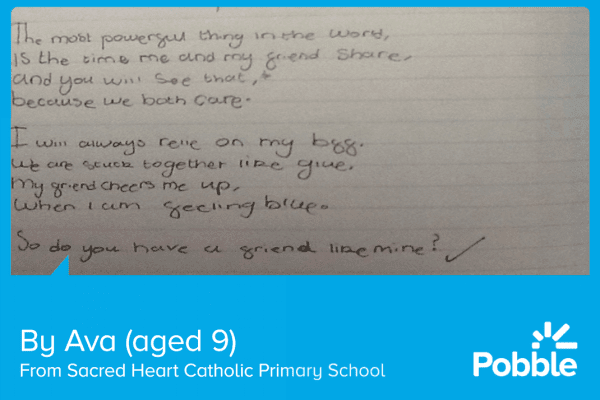 The most powerful thing in the word,
is the time me and my friend share,
and you will see that,
because we both care.
I will always relie on my bff.
we are stuck together like glue.
My friend cheers me up,
when I am feeling blue.
So do you have a friend like mine?
By Ava (aged 9)
From Sacred Heart Catholic Primary School
Pobble